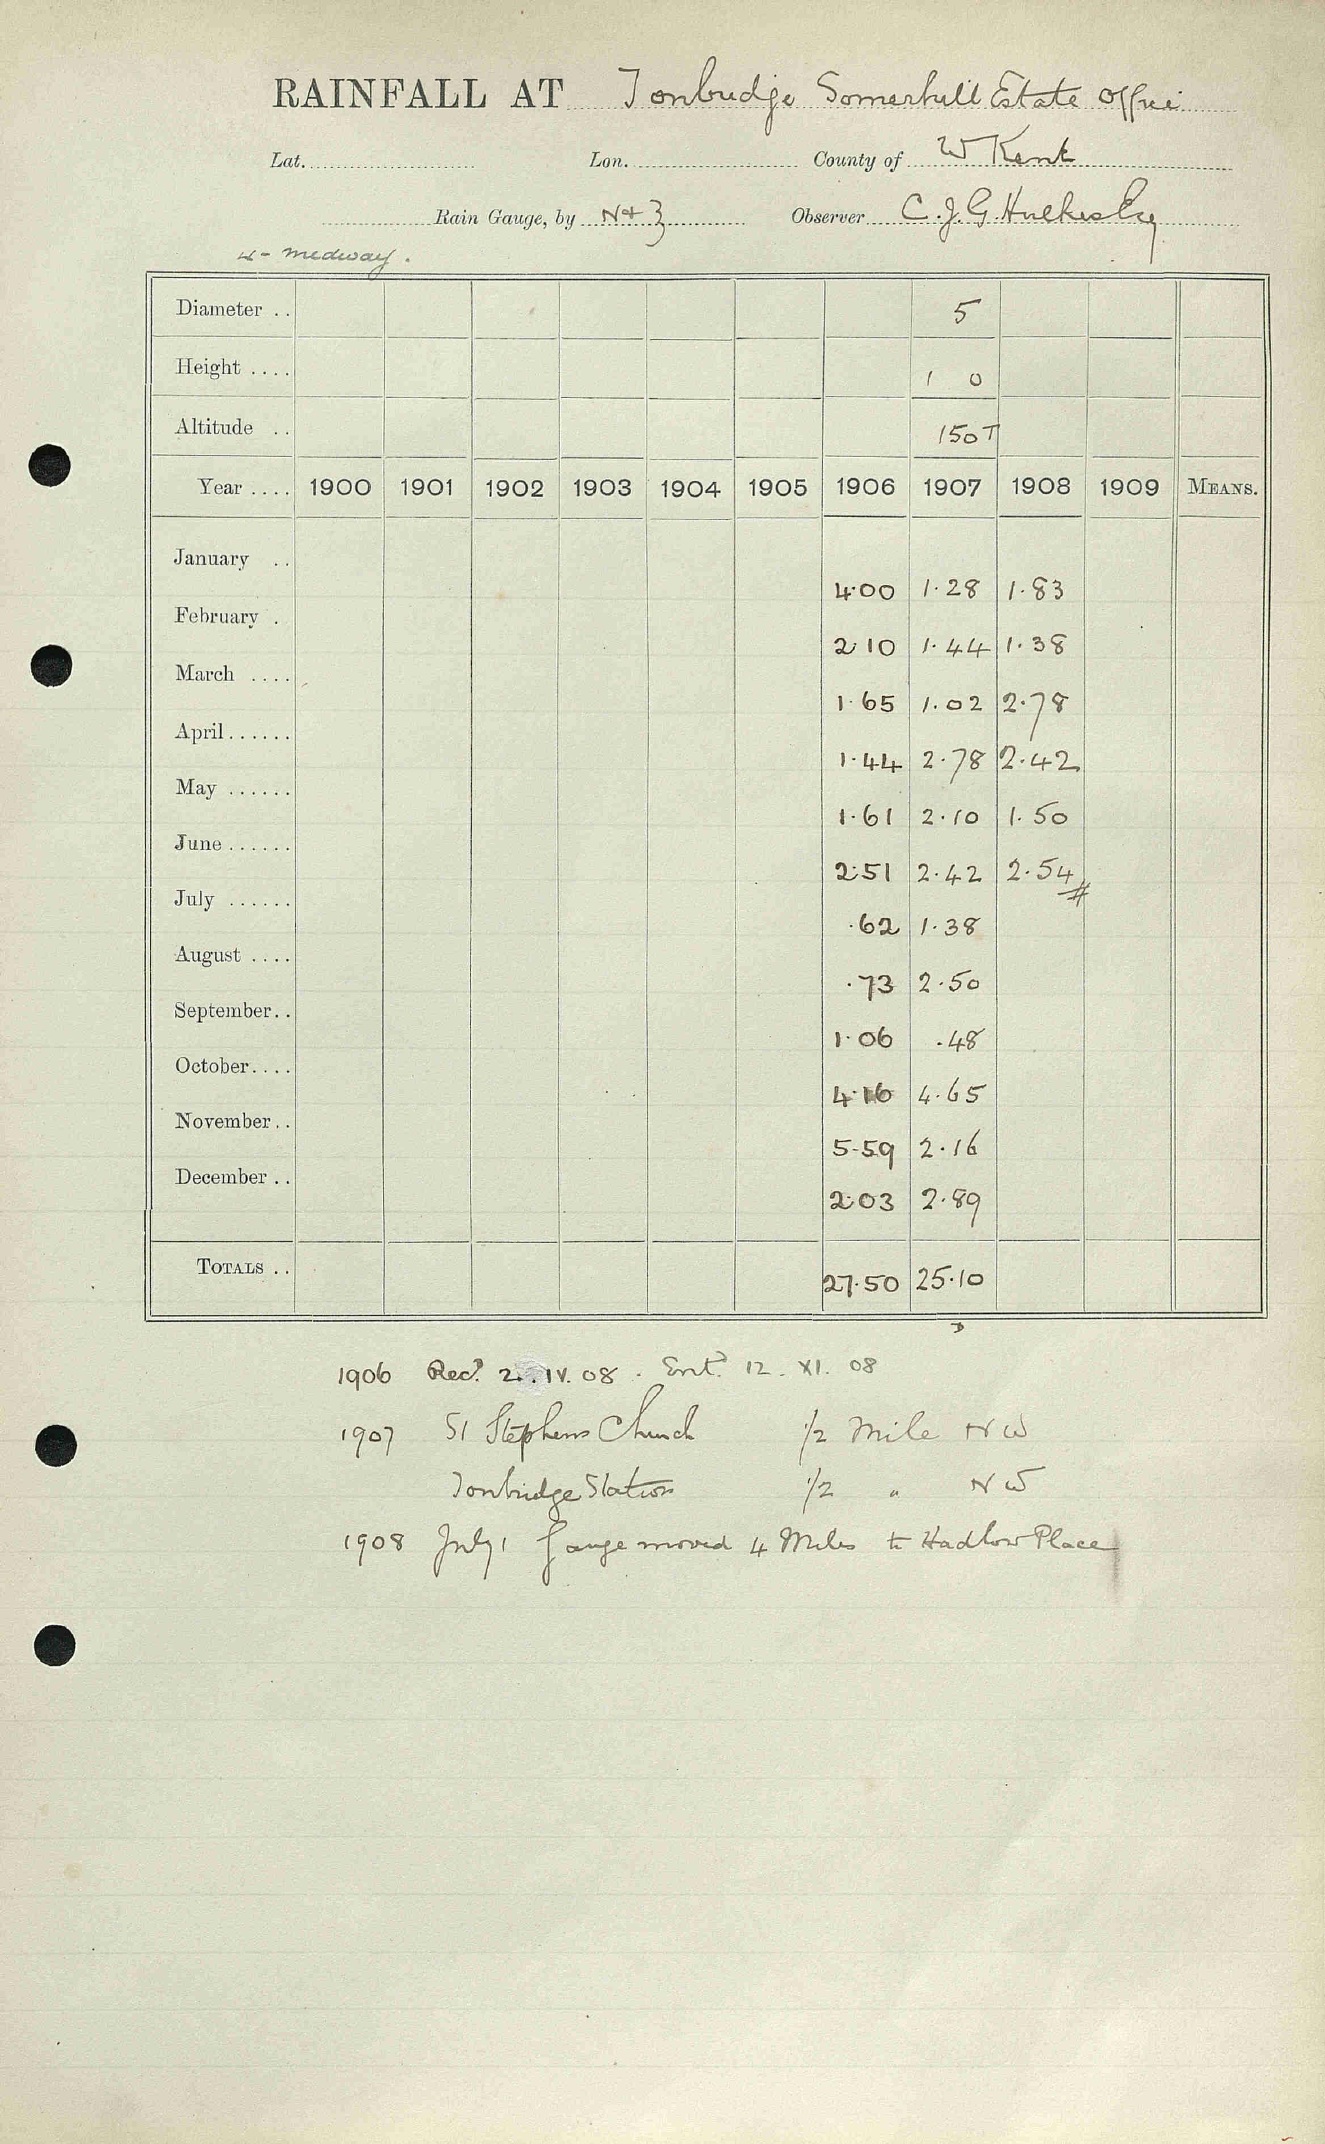 RAINFALL AT Tonbridge Somerhill Estate Office
Lat. Lon. County of W Kent
Rain Gauge, by N & Z Observer C.J.G.
4 - Medway.
Diameter .. 5
Height .... 1 0
Altitude .. 150 T
Year .... 1900 1901 1902 1903 1904 1905 1906 1907 1908 1909 MEANS.
January .. 4.00 1.28 1.83
February . 2.10 1.44 1.38
March .... 1.65 1.02 2.78
April...... 1.44 2.78 2.42
May ...... 1.61 2.10 1.50
June...... 2.51 2.42 2.54
July ...... .62 1.38
August .... .73 2.50
September.. 1.06 .48
October.... 4.16 4.65
November.. 5.59 2.16
December.. 2.03 2.89
TOTALS .. 27.50 25.10
1906 Recd. IV. 08. Entd. 12. XI. 08
1907 St Stephens Church 1/2 Mile NW
Tonbridge Station 1/2 " NW
1908 July 1 Gauge moved 4 Miles to Hadlow Place